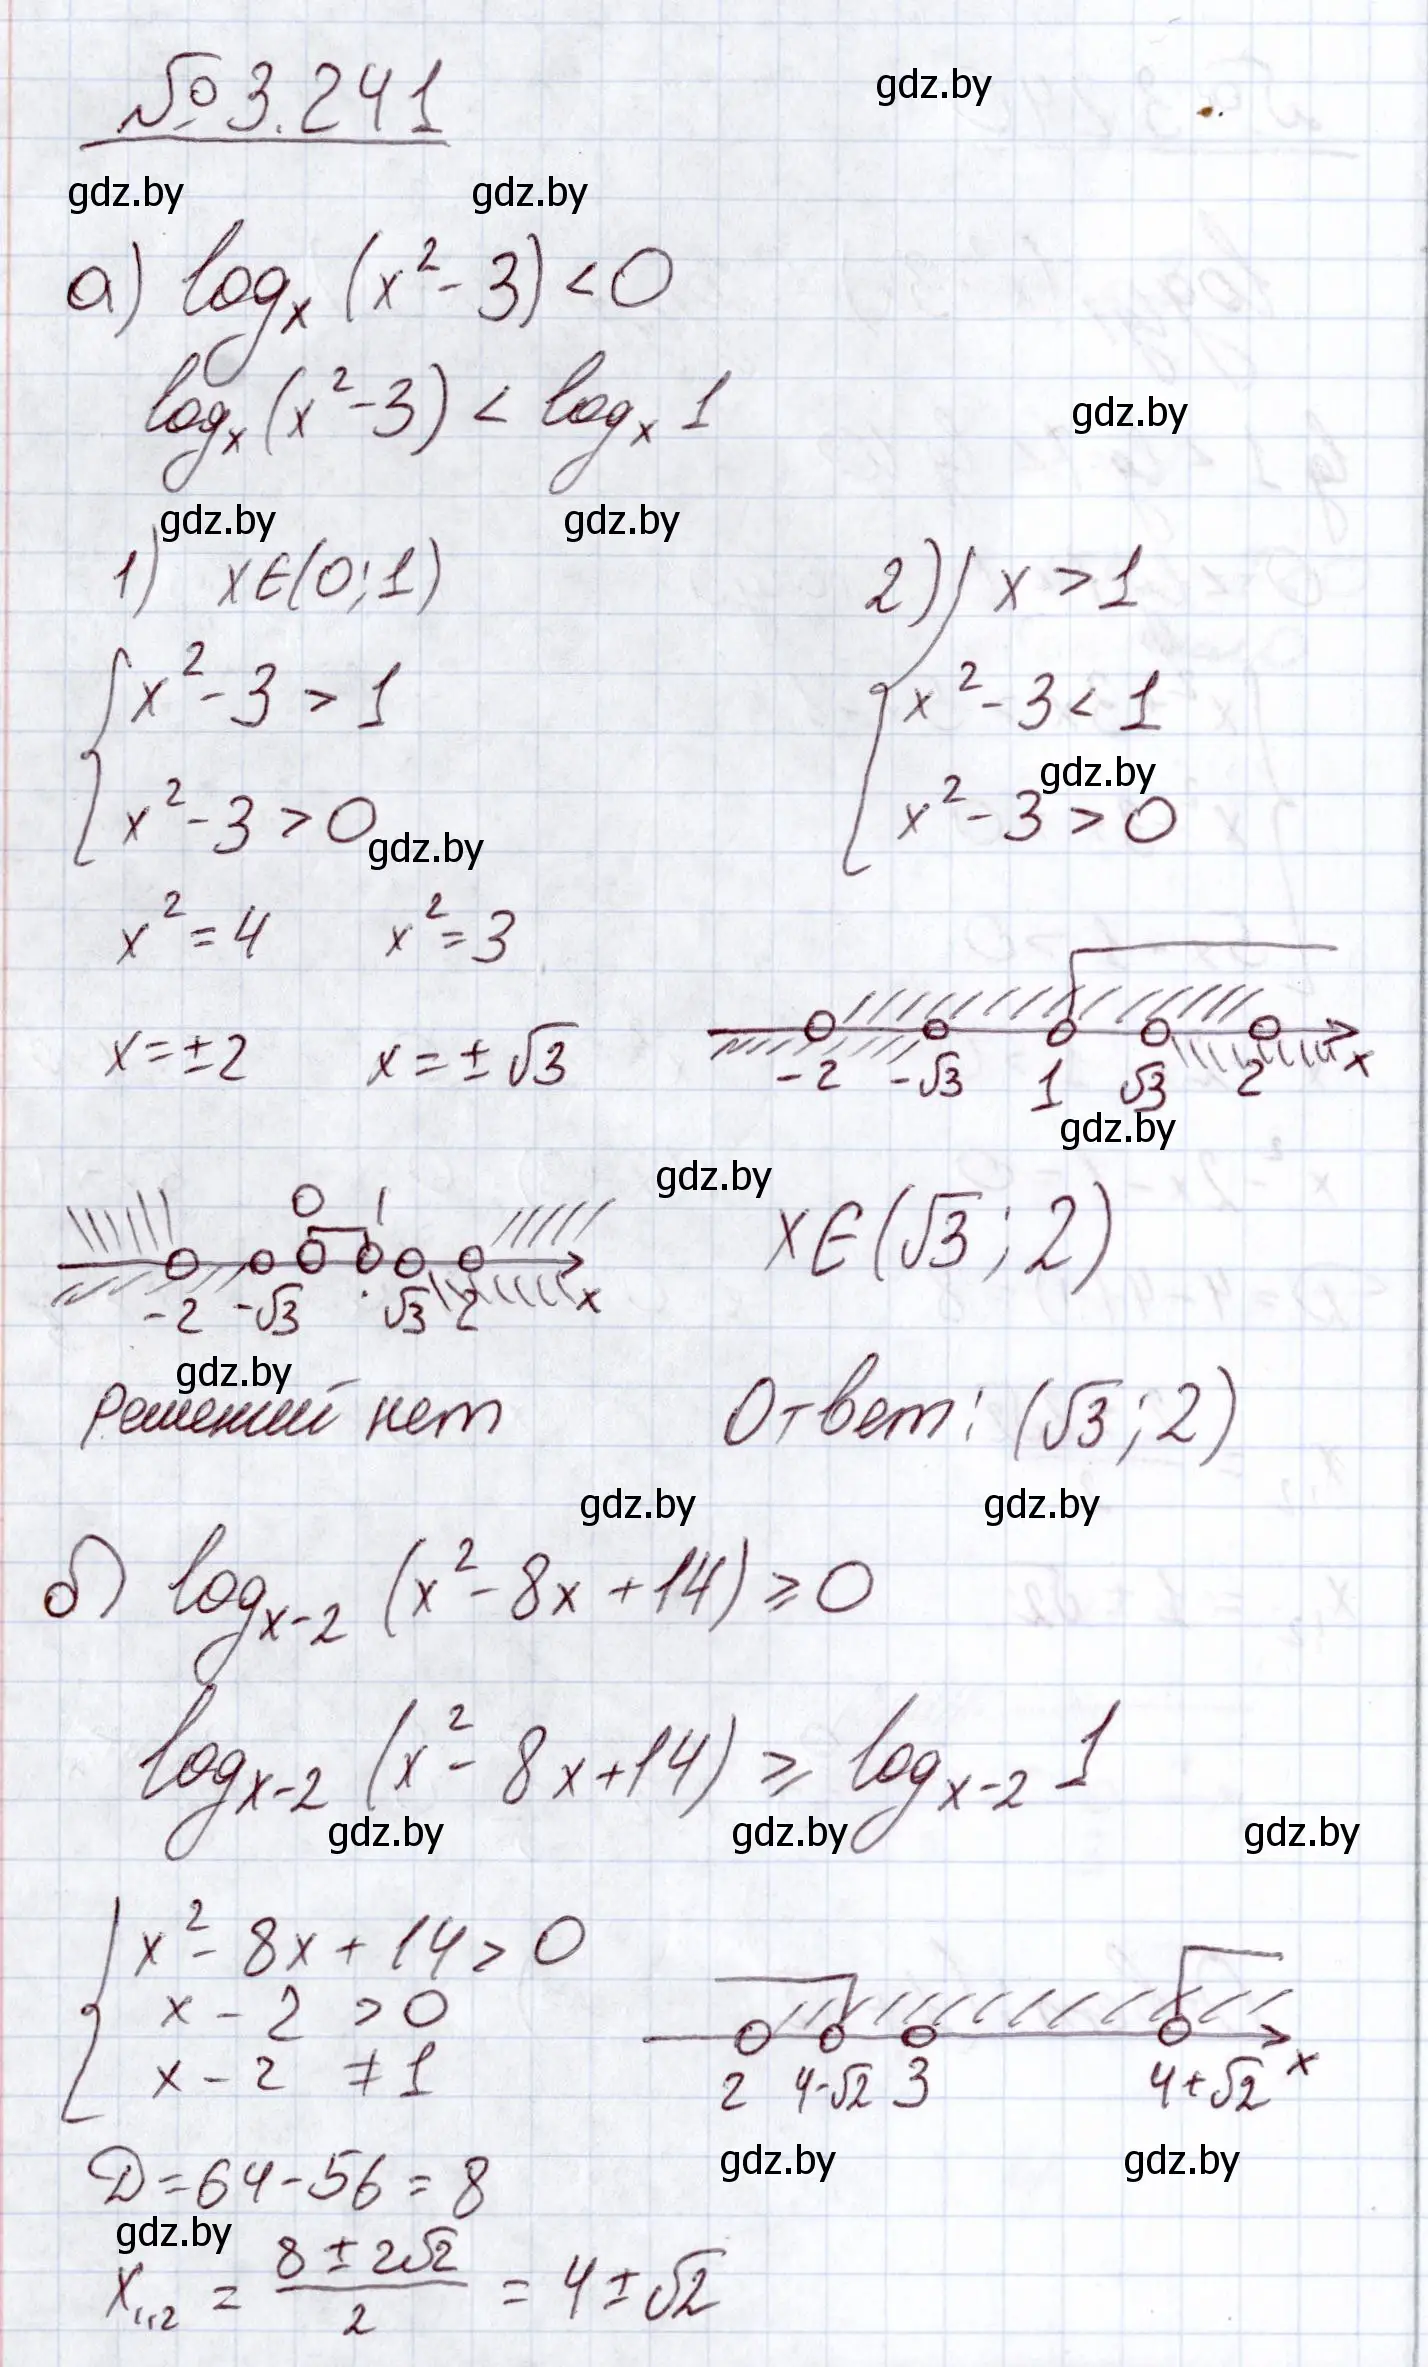 № 3.241
gdz.by
gdz.by gdz.by
а) logₓ (x² - 3) < 0
logₓ (x² - 3) < logₓ 1
gdz.by
gdz.by gdz.by
1) x∈(0; 1)
{ x² - 3 > 1
x² - 3 > 0
gdz.by
x² = 4 x² = 3
x = ±2 x = ±√3
0 1
-2 -√3 √3 2 x
gdz.by
Решений нет
2) { x > 1
x² - 3 < 1
gdz.by
x² - 3 > 0
-2 -√3 1 √3 2 x
gdz.by
gdz.by
x∈(√3; 2)
Ответ: (√3; 2)
gdz.by gdz.by
б) logₓ₋₂ (x² - 8x + 14) ≥ 0
logₓ₋₂ (x² - 8x + 14) ≥ logₓ₋₂ 1
gdz.by gdz.by gdz.by
{ x² - 8x + 14 > 0
x - 2 > 0
x - 2 ≠ 1
2 4-√2 3 4+√2 x
gdz.by gdz.by
D = 64 - 56 = 8
gdz.by
x₁,₂ = (8 ± 2√2)/2 = 4 ± √2